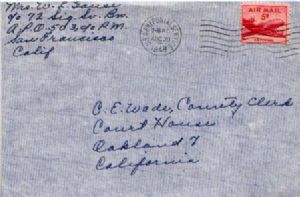 Mrs. W. F.
c/o 72 Sig. Sv. Bn.
A.P.O. 503, c/o P.M.
San Francisco
Calif
AIR MAIL
5¢
C. E. Wade, County Clerk
Court House
Oakland 7
California